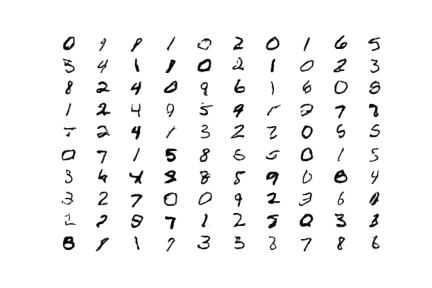 0 9 1 0 2 0 1 6 5
5 4 1 1 0 2 1 0 2 3
8 2 4 0 9 6 1 6 0 8
1 2 4 9 5 9 7 8
2 4 1 3 2 2 0 5 5
0 7 1 5 8 6 5 0 1 5
3 4 4 8 8 5 9 0 8 4
3 2 7 0 0 9 2 3 6
2 2 8 7 1 2 5 0 3 8
8 1 1 7 3 3 8 7 8 6